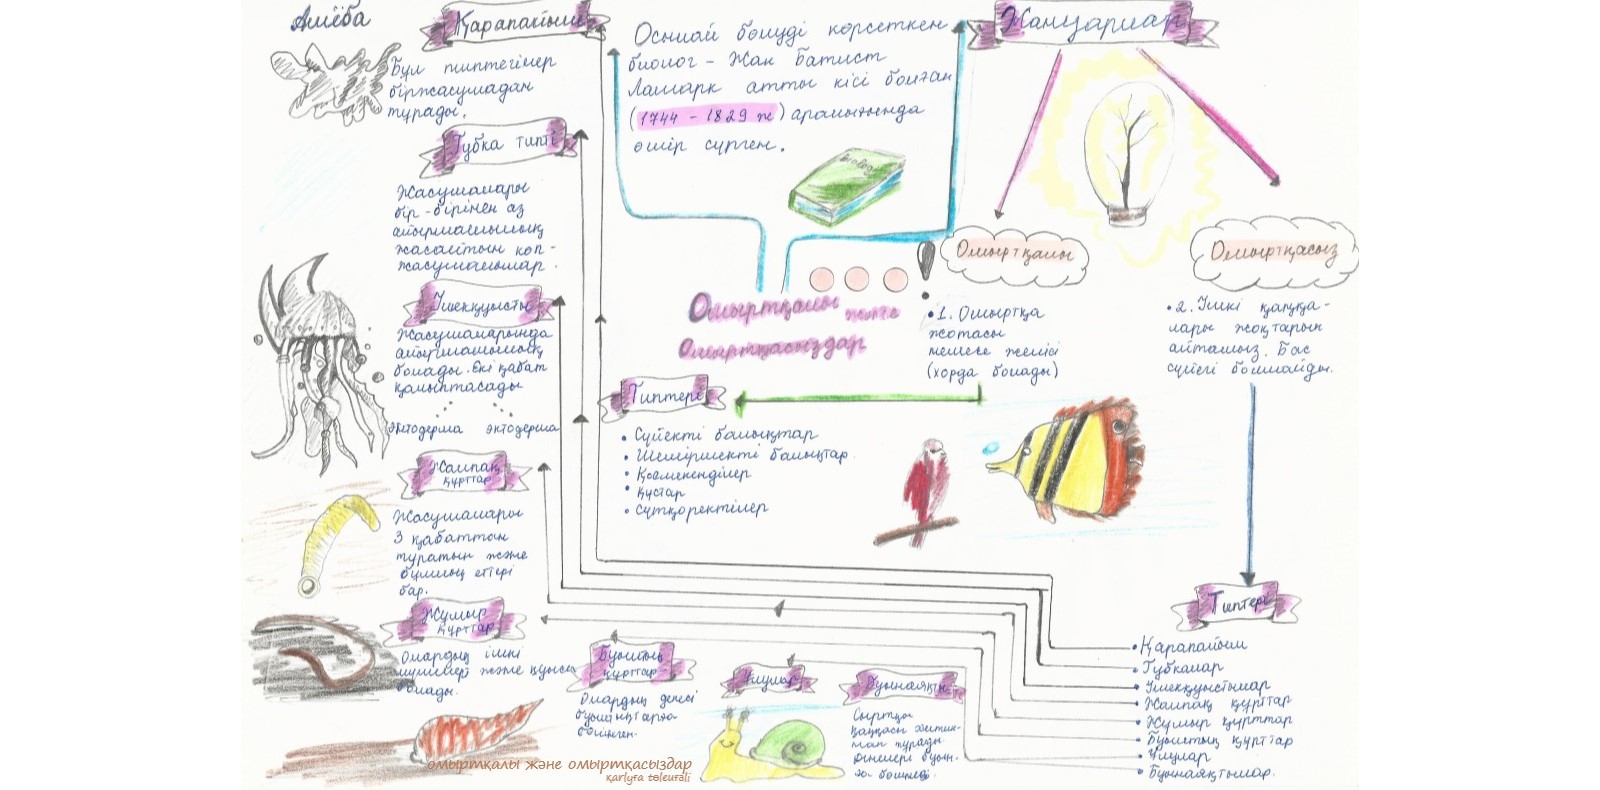 Амёба
Қарапайым
Бұл типтегілер
біржасушадан
тұрады.
Губка типті
Жасушалары
бір-бірінен аз
айырмашылық
жасайтын көп-
жасушалылар.
Ішекқуысты
Жасушаларында
айырмашылық
болады. Екі қабат
қалыптасады
эктодерма эктодерма
Жалпақ
құрттар
Жасушалары
3 қабаттан
тұратын және
бұлшық еттері
бар.
Жұмыр
құрттар
Олардың ішкі
мүшелері және қуысы
болады.
Буылтық
құрттар
Олардың денесі
буылтықтарға
бөлінген.
Ұлулар
Буынаяқты
Сыртқы
қаңқасы
тұрады
буын-
Осылай бөлуді көрсеткен
биолог - Жан Батист
Ламарк атты кісі болған
(1744 - 1829 ж) аралығында
өмір сүрген.
biology
Омыртқалы және
Омыртқасыздар
Жануарлар
Омыртқалы
Омыртқасыз
• 1. Омыртқа
жотасы
немесе желісі
(хорда болады)
• 2. Ішкі қаңқа-
лары жоқтарын
айтамыз. Бас
сүйегі болмайды.
Типтері
• Сүйекті балықтар
• Шеміршекті балықтар
• Қосмекенділер
• Құстар
• Сүтқоректілер
Типтері
• Қарапайым
• Губкалар
• Ішекқуыстылар
• Жалпақ құрттар
• Жұмыр құрттар
• Буылтық құрттар
• Ұлулар
• Буынаяқтылар.
омыртқалы және омыртқасыздар
қarlyғa tөleuғali